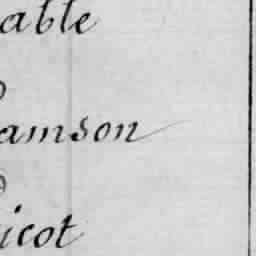 able
amson
icot